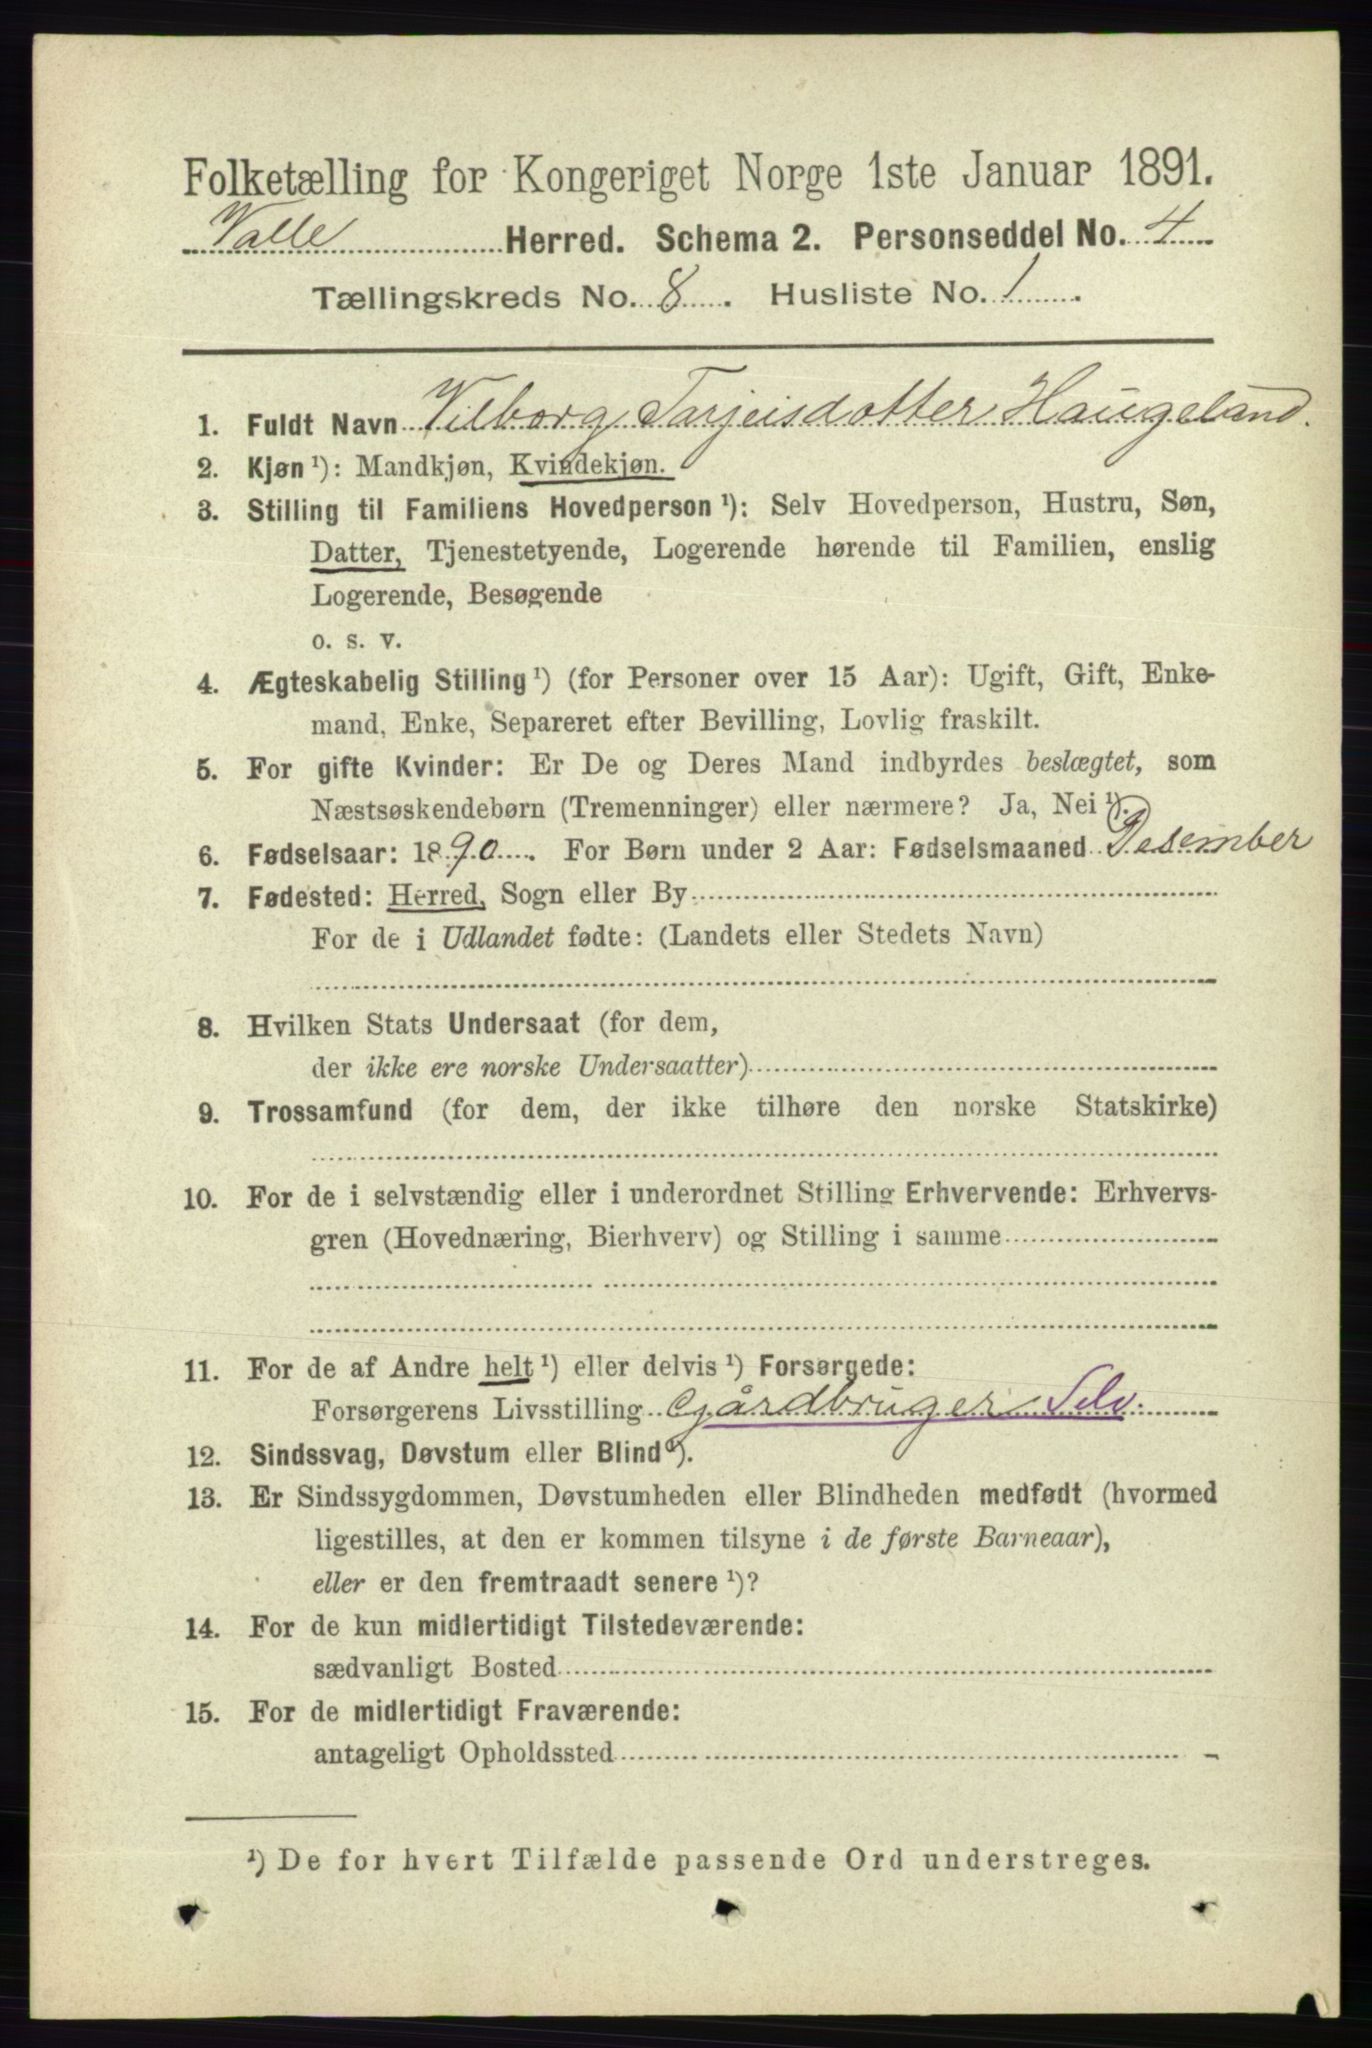 Folketælling for Kongeriget Norge 1ste Januar 1891.
Valle Herred. Schema 2. Personseddel No. 4
Tællingskreds No. 8. Husliste No. 1.
1. Fuldt Navn Vilborg Tarjeisdotter Haugeland.
2. Kjøn ¹): Mandkjøn, Kvindekjøn.
3. Stilling til Familiens Hovedperson ¹): Selv Hovedperson, Hustru, Søn,
Datter, Tjenestetyende, Logerende hørende til Familien, enslig
Logerende, Besøgende
o. s. v.
4. Ægteskabelig Stilling ¹) (for Personer over 15 Aar): Ugift, Gift, Enke-
mand, Enke, Separeret efter Bevilling, Lovlig fraskilt.
5. For gifte Kvinder: Er De og Deres Mand indbyrdes beslægtet, som
Næstsøskendebørn (Tremenninger) eller nærmere? Ja, Nei ¹).
6. Fødselsaar: 1890. For Børn under 2 Aar: Fødselsmaaned Desember
7. Fødested: Herred, Sogn eller By
For de i Udlandet fødte: (Landets eller Stedets Navn)
8. Hvilken Stats Undersaat (for dem,
der ikke ere norske Undersaatter)
9. Trossamfund (for dem, der ikke tilhøre den norske Statskirke)
10. For de i selvstændig eller i underordnet Stilling Erhvervende: Erhvervs-
gren (Hovednæring, Bierhverv) og Stilling i samme
11. For de af Andre helt ¹) eller delvis ¹) Forsørgede:
Forsørgerens Livsstilling Gårdbruger Selv.
12. Sindssvag, Døvstum eller Blind ¹).
13. Er Sindssygdommen, Døvstumheden eller Blindheden medfødt (hvormed
ligestilles, at den er kommen tilsyne i de første Barneaar),
eller er den fremtraadt senere ¹)?
14. For de kun midlertidigt Tilstedeværende:
sædvanligt Bosted
15. For de midlertidigt Fraværende:
antageligt Opholdssted
¹) De for hvert Tilfælde passende Ord understreges.